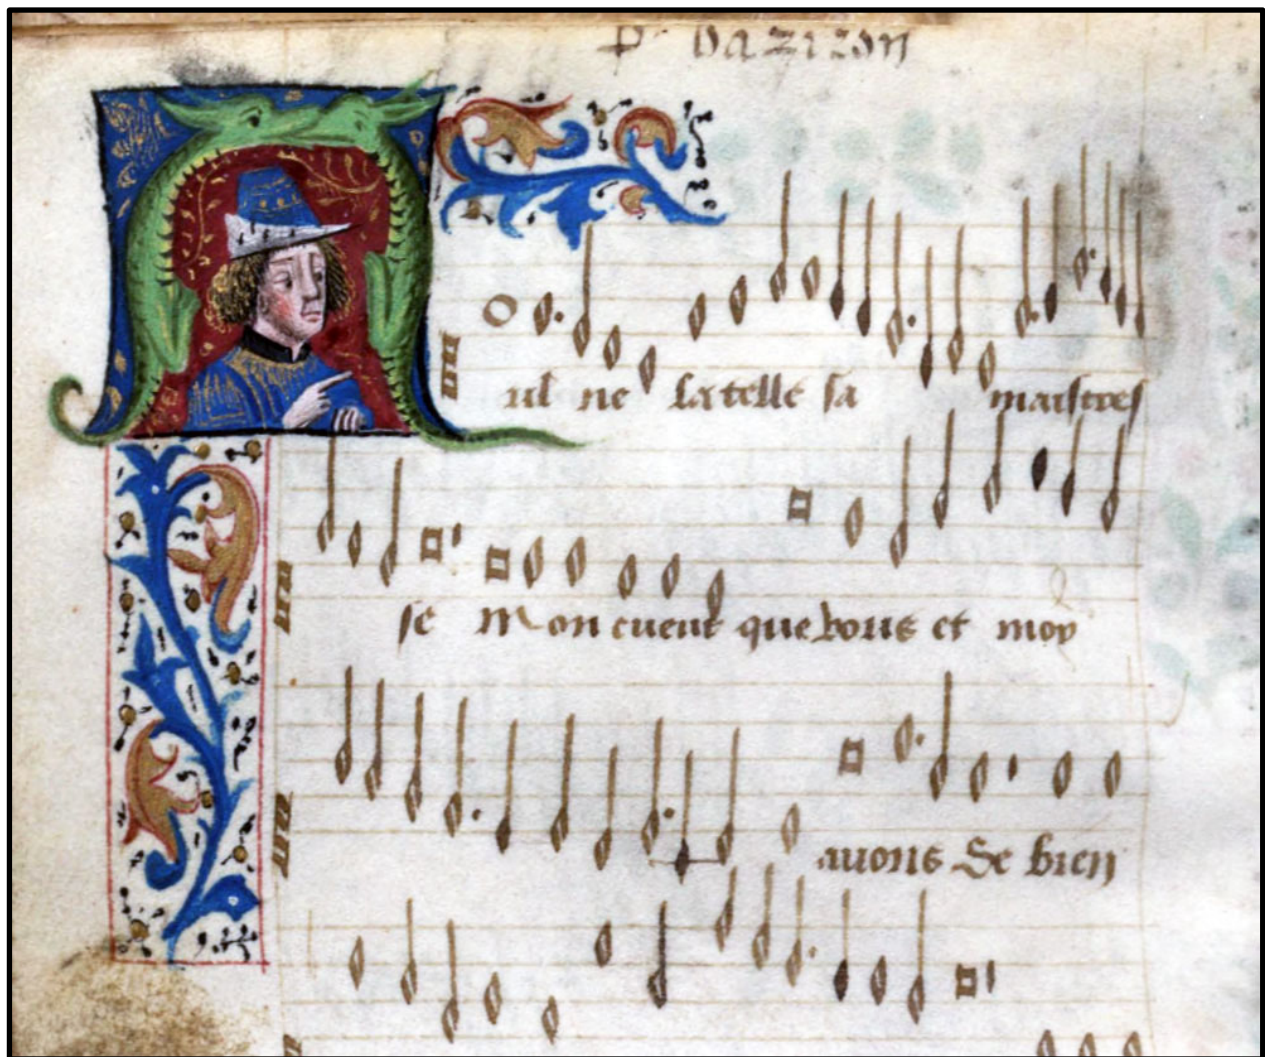 P. bazizon
Nul ne la telle sa maistres
se Mon cueur que vous et moy
avons De bien